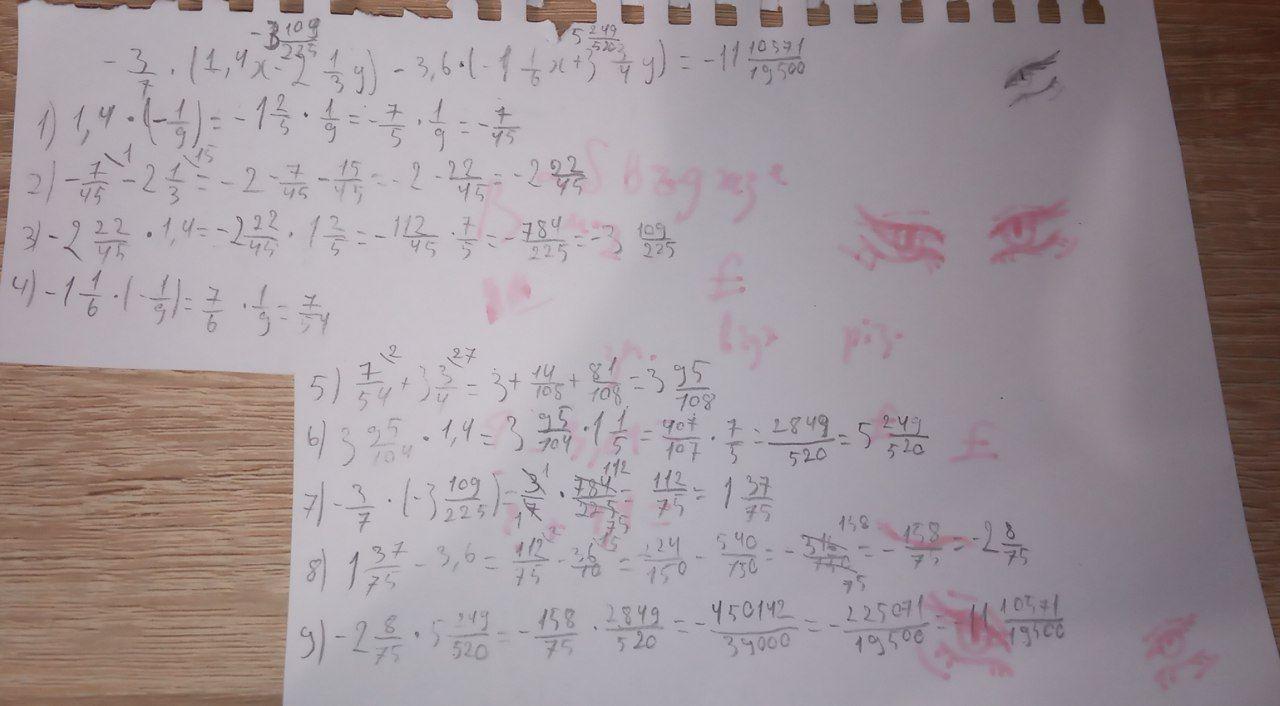 -3 109/225 5 249/520
- 3/7 · (1,4x - 2 1/3 y) - 3,6 · (-1 1/6 x + 3 3/4 y) = -11 10571/19500
1) 1,4 · (-1/9) = -1 2/5 · 1/9 = -7/5 · 1/9 = -7/45
2) -7/45 - 2 1/3 = -2 - 7/45 - 15/45 = -2 - 22/45 = -2 22/45
3) -2 22/45 · 1,4 = -2 22/45 · 1 2/5 = -112/45 · 7/5 = -784/225 = -3 109/225
4) -1 1/6 · (-1/9) = 7/6 · 1/9 = 7/54
5) 7/54 + 3 3/4 = 3 + 14/108 + 81/108 = 3 95/108
6) 3 95/104 · 1,4 = 3 95/104 · 1 1/5 = 407/107 · 7/5 = 2849/520 = 5 249/520
7) -3/7 · (-3 109/225) = 3/7 · 784/225 = 112/75 = 1 37/75
8) 1 37/75 - 3,6 = 112/75 - 36/10 = 224/150 - 540/150 = -316/150 = -158/75 = -2 8/75
9) -2 8/75 · 5 249/520 = -158/75 · 2849/520 = -450142/39000 = -225071/19500 = -11 10571/19500